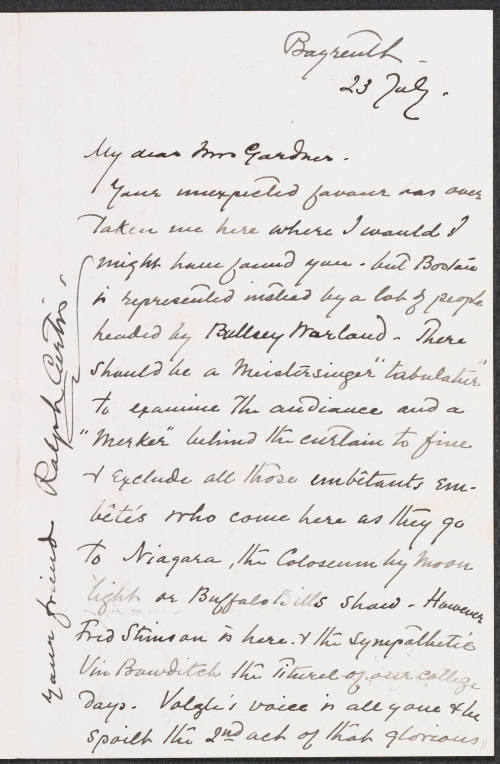 Bayreuth -
23 July.
My dear Mrs Gardner.
Your unexpected favour has over
taken me here where I would I
might have found you - but Boston
is represented instead by a lot of people
headed by Warland - There
should be a Meistersinger "tabulatur"
to examine the audiance and a
"Merker" behind the curtain to fine
& exclude all those embêtants em-
bêtés who come here as they go
to Niagara, the Coloseum by Moon
light or Buffalo Bills show - However
Fred Stimson is here. & the sympathetic
Vin Bowditch the Titurel of our college
Days. Volgli's voice is all gone & he
spoilt the 2nd act of that glorious
Your friend Ralph Curtis.